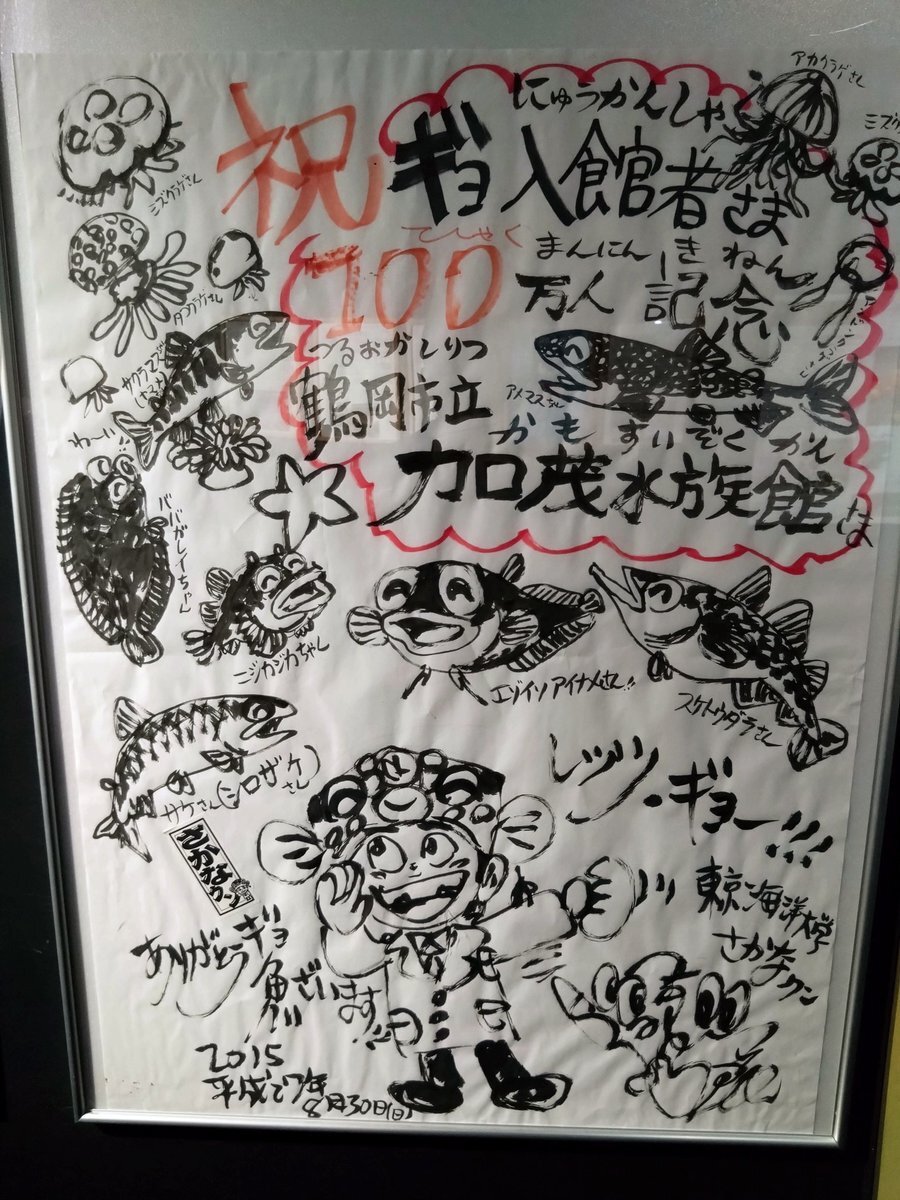 アカクラゲさん
ミズクラゲさん
にゅうかんしゃ
祝 ギョ入館者さま
てしゃく
まんにん きねん
100万人記念
タコクラゲさん
サクラマスさん
わーい!!
つるおかしりつ
鶴岡市立
アメマスちゃん
かもすいぞくかん
加茂水族館さま
ババガレイちゃん
ニジカジカちゃん
エゾイソアイナメさん!!
スケトウダラさん
サケさん(シロザケさん)
さかなクン
レッツ・ギョー!!!
東京海洋大学
さかなクン
ありがとう
ギョ魚ざいます!!
2015
平成27年
8月30日(日)